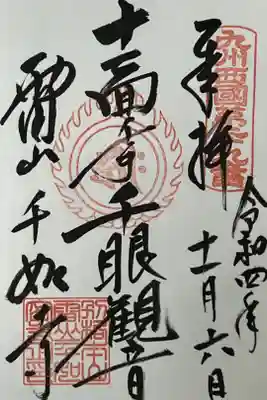 九州西國第二十九番
奉拝
令和四年
十一月六日
十一面千手千眼觀音
雷山千如寺